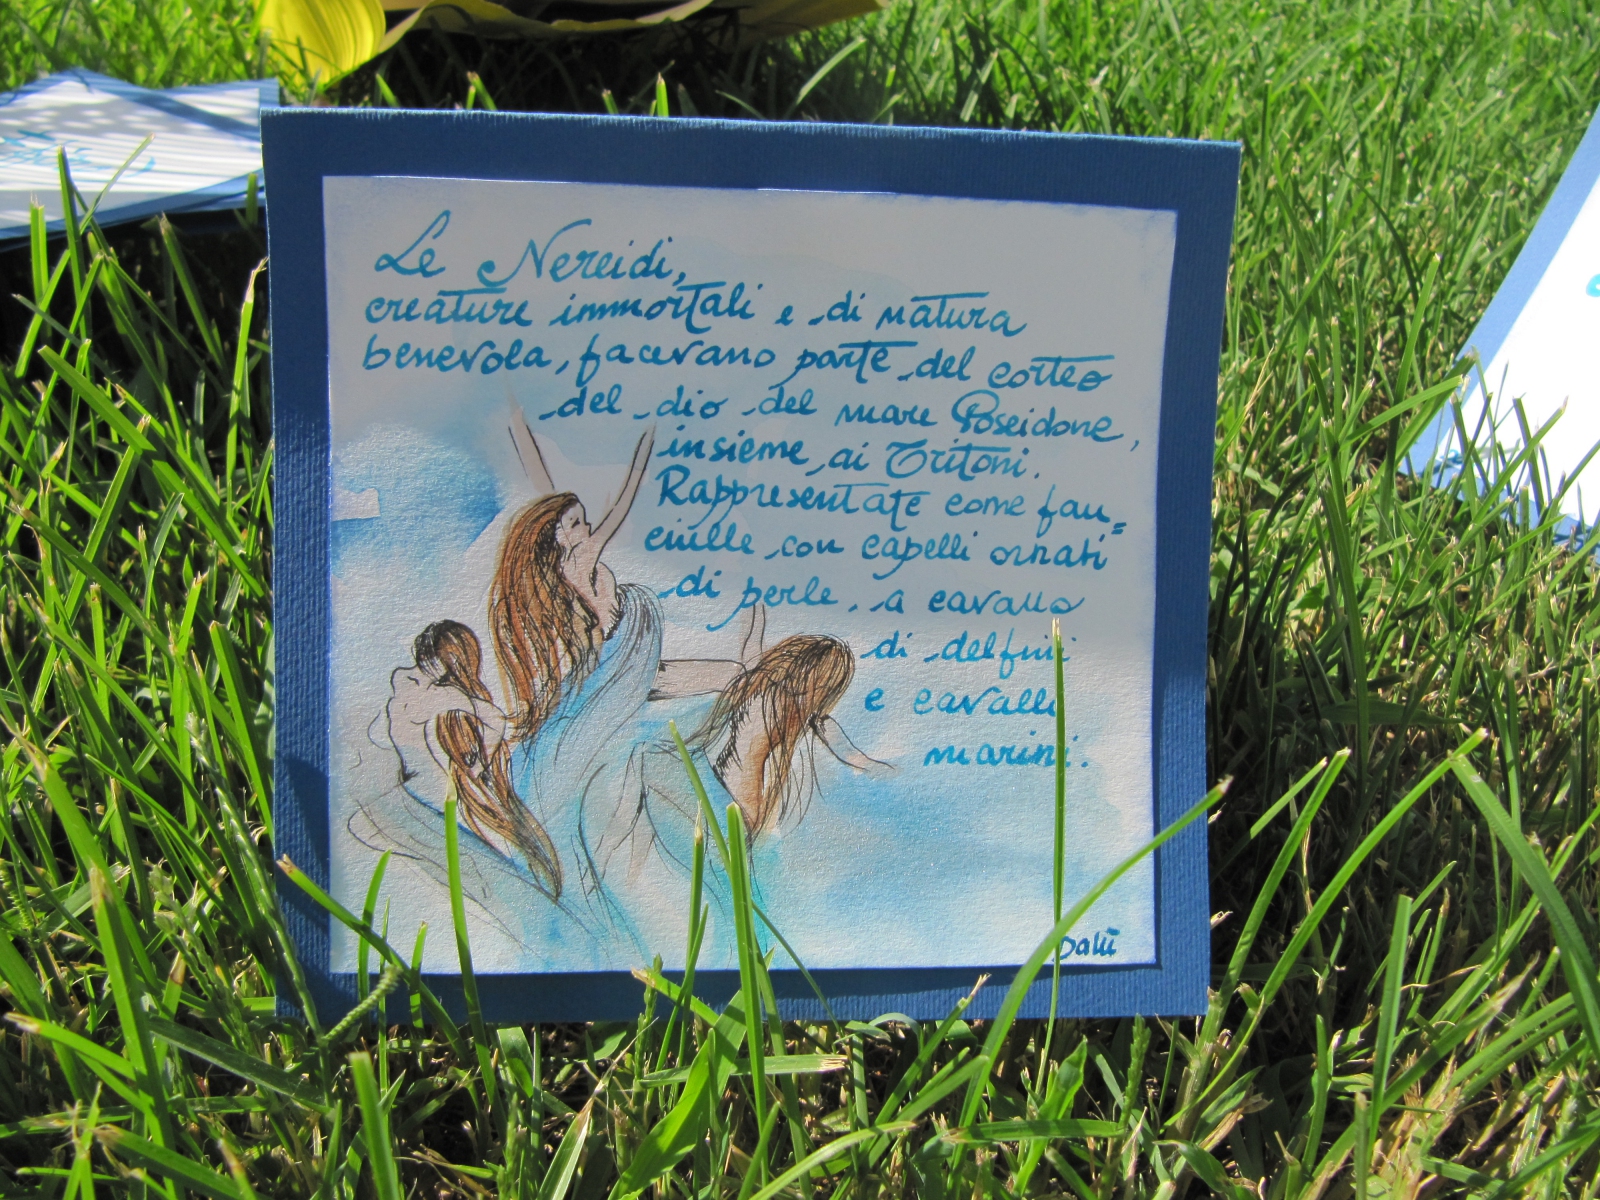 Le Nereidi,
creature immortali e di natura
benevola, facevano parte del corteo
del dio del mare Poseidone,
insieme ai Tritoni.
Rappresentate come fan=
ciulle con capelli ornati
di perle, a cavallo
di delfini
e cavalli
marini.
Dalù